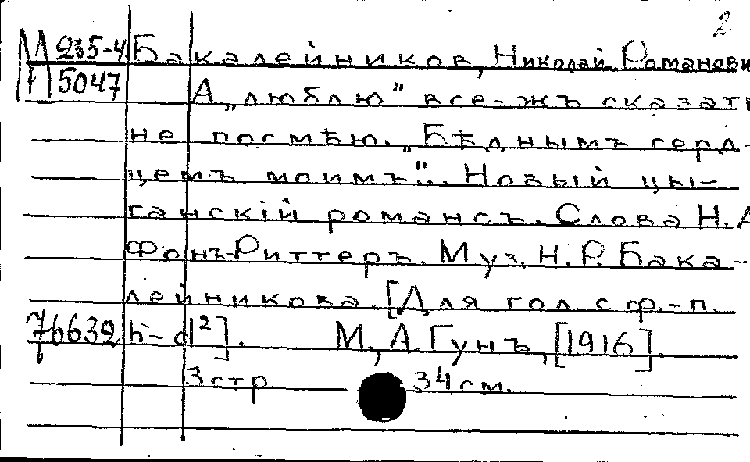 2
М 235-4 Бакалейников, Николай Романови
П 5047 А „люблю" все-жъ сказать
не посмѣю. „Бѣднымъ серд-
цемъ моимъ"... Новый цы-
ганскій романсъ. Слова Н. А
Фонъ-Риттеръ. Муз. Н. Р. Бака-
лейникова. [Для гол. с ф.-п.
76632 h-d²]. М., А. Гунъ, [1916].
3 стр 34 см.